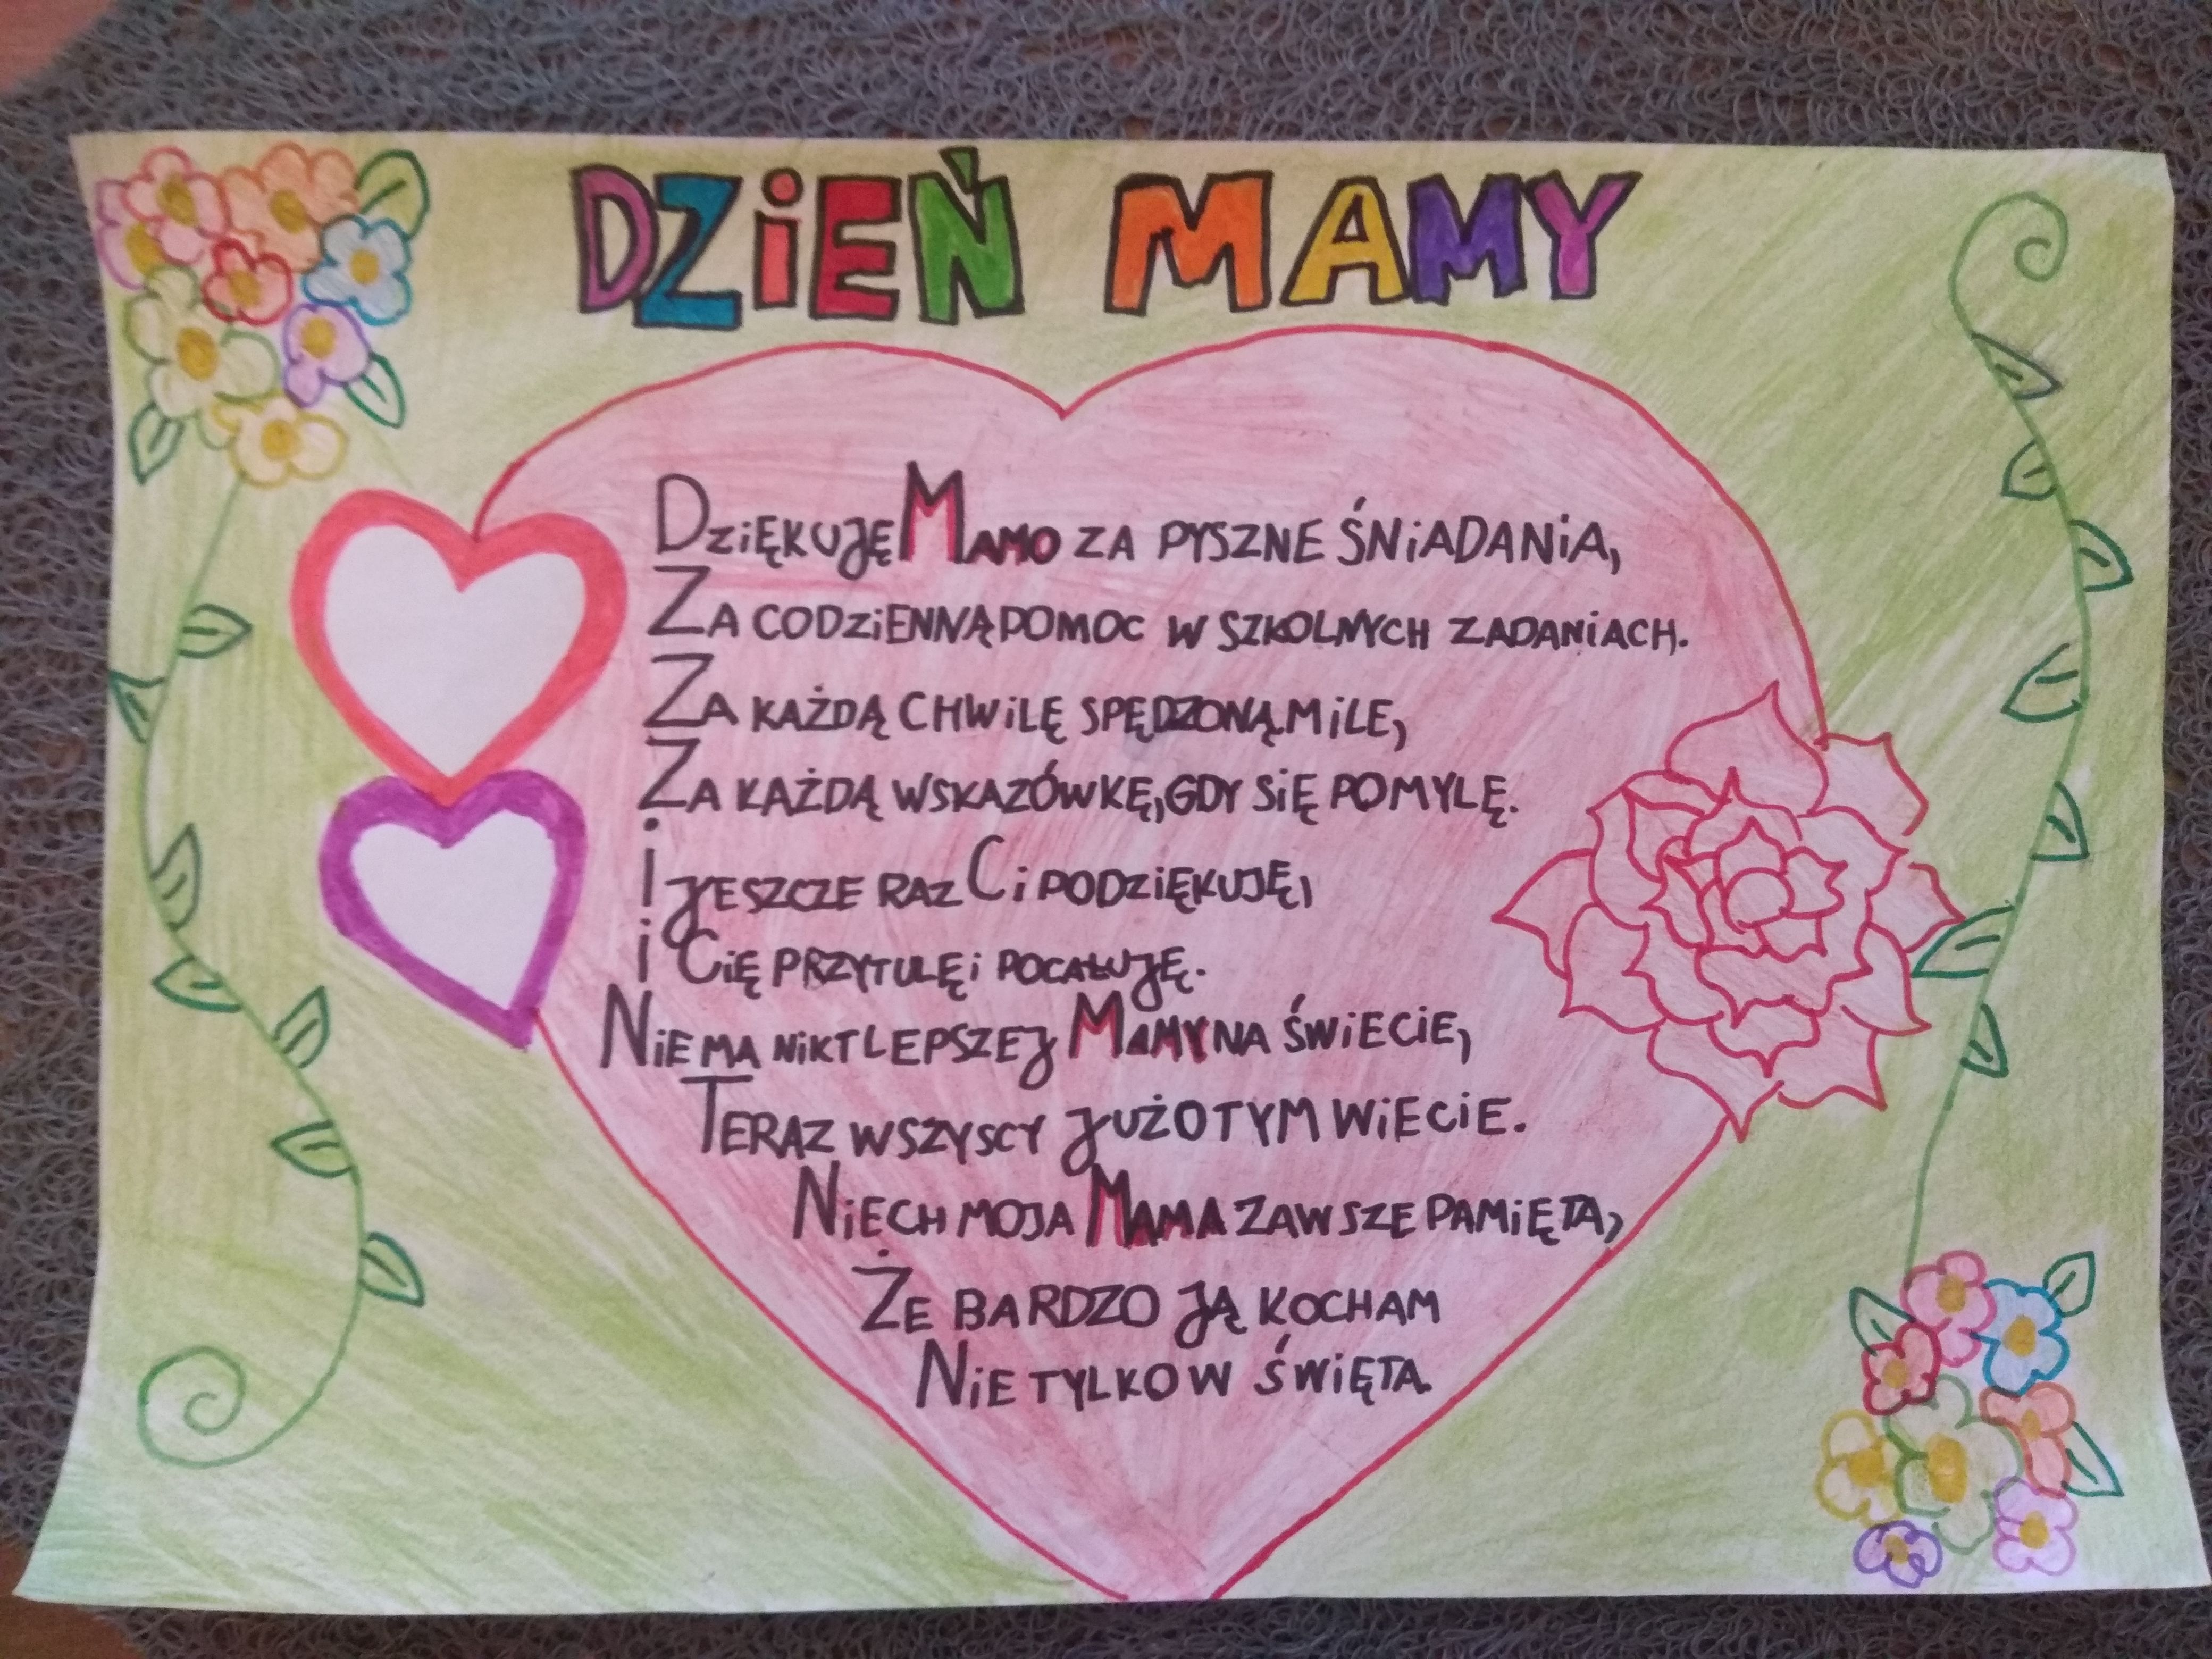 DZiEŃ MAMY
DZiĘKUJĘ MAMO ZA PYSZNE ŚNiADANiA,
ZA CODZiENNĄ POMOC W SZKOLNYCH ZADANiACH.
ZA KAŻDĄ CHWiLĘ SPĘDZONĄ MiLE,
ZA KAŻDĄ WSKAZÓWKĘ, GDY SiĘ POMYLĘ.
i JESZCZE RAZ Ci PODZiĘKUJĘ,
i CiĘ PRZYTULĘ i POCAŁUJĘ.
NiE MA NiKT LEPSZEJ MAMY NA ŚWiECiE,
TERAZ WSZYSCY JUŻ O TYM WiECiE.
NiECH MOJA MAMA ZAWSZE PAMiĘTA,
ŻE BARDZO JĄ KOCHAM
NiE TYLKO W ŚWiĘTA.